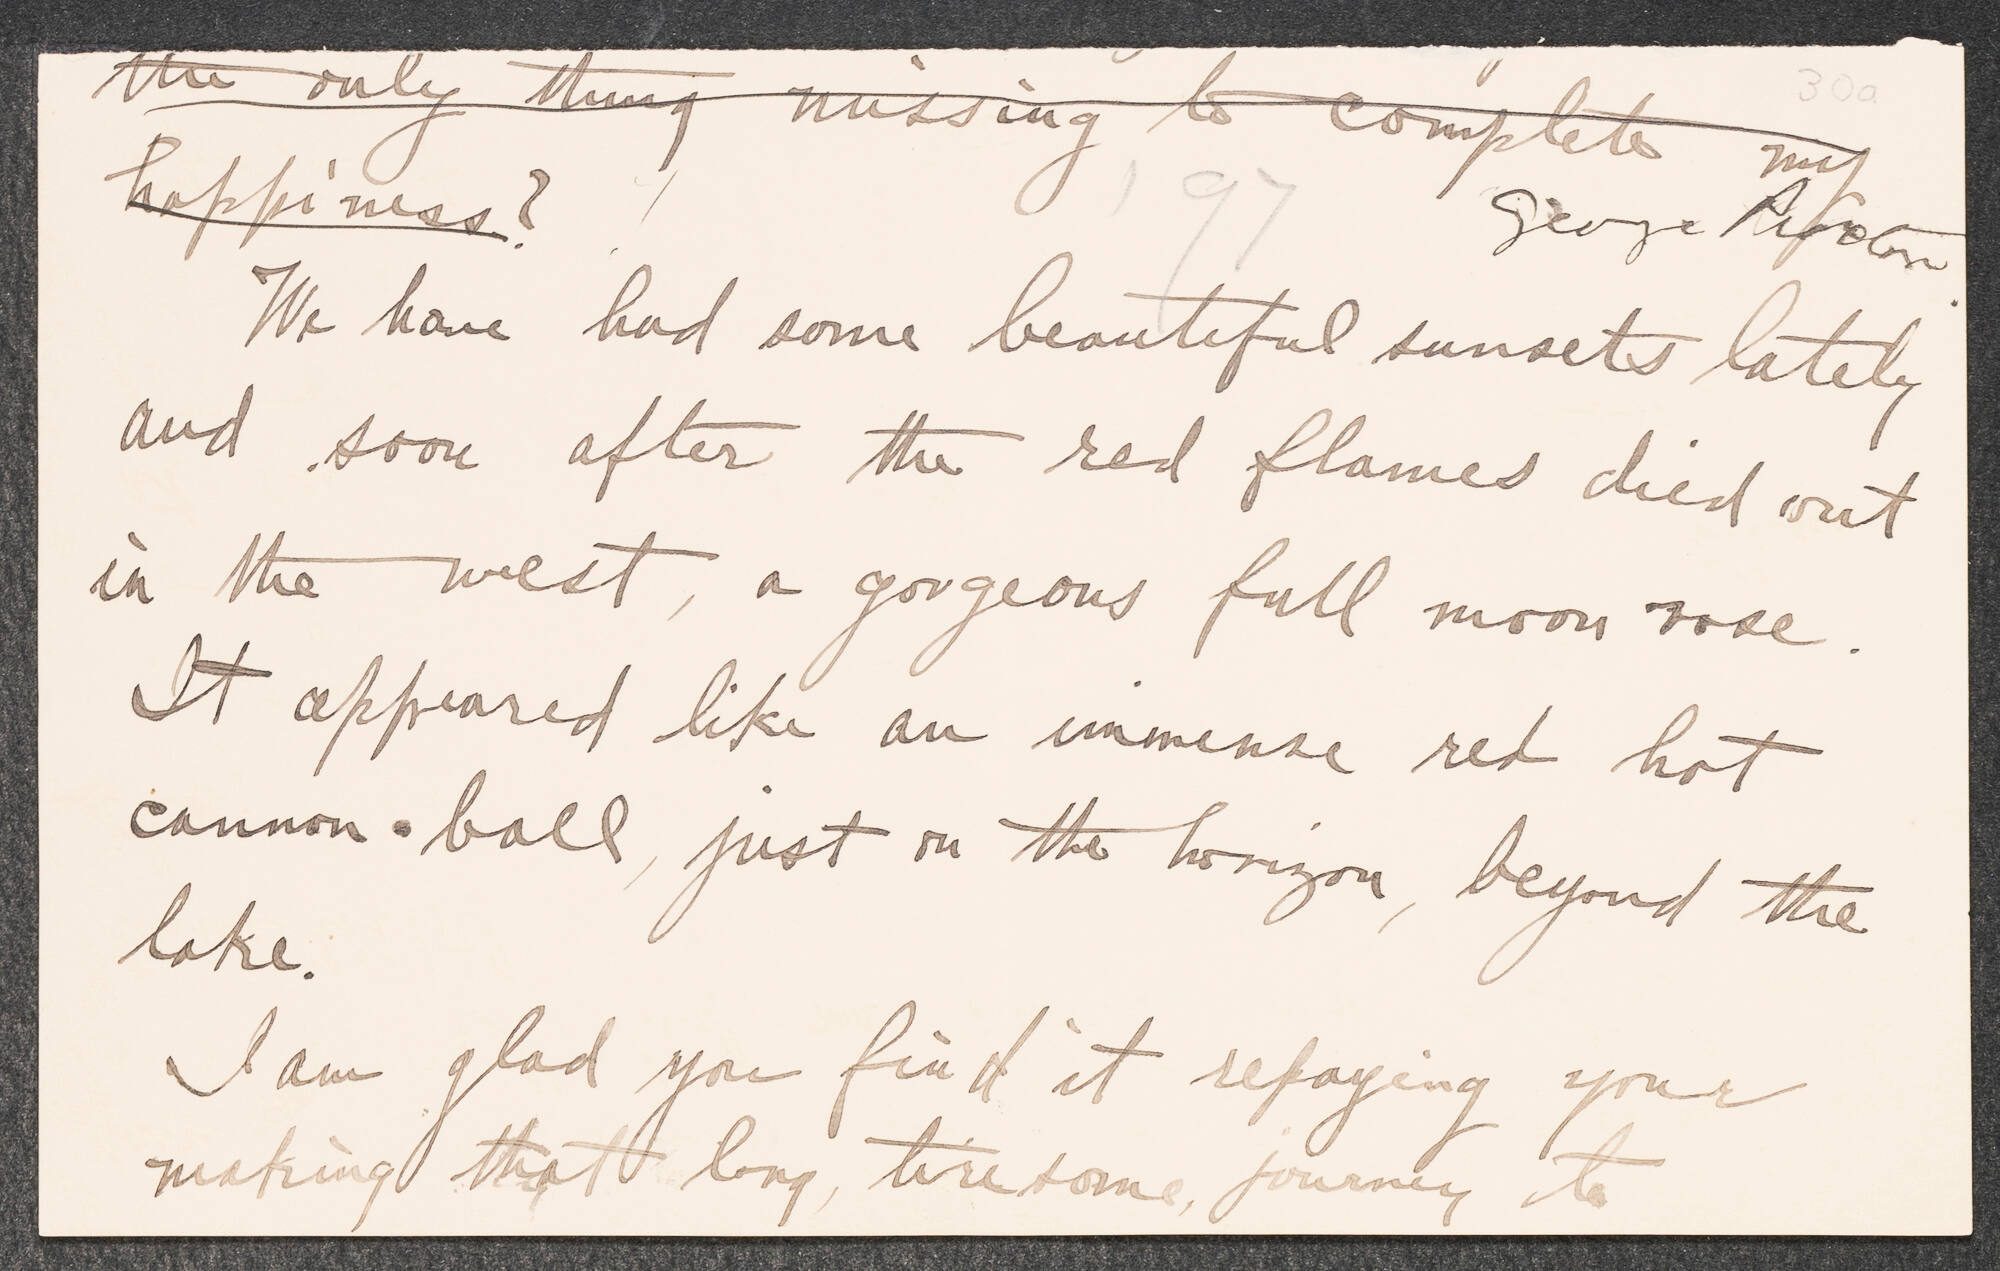 the only thing missing to complete my
30a
happiness?
197
George
We have had some beautiful sunsets lately
and soon after the red flames died out
in the west, a gorgeous full moon rose.
It appeared like an immense red hot
cannon-ball, just on the horizon, beyond the
lake.
I am glad you find it repaying your
making that long, tiresome, journey to